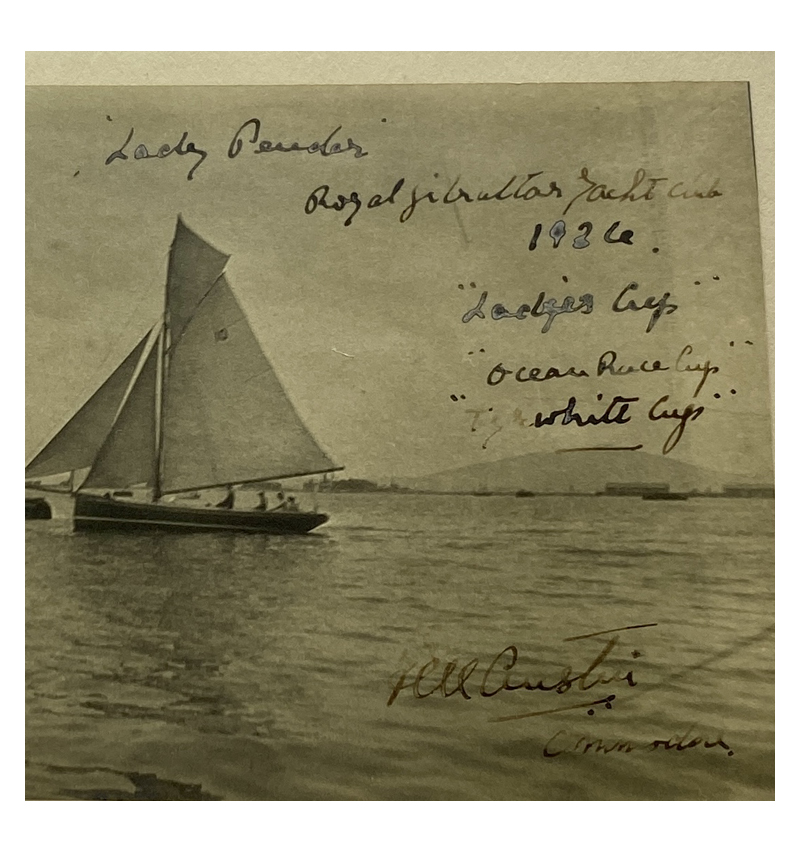 "Lady Pender"
Royal Gibraltar Yacht Club
1926.
"Ladies Cup"
"Ocean Race Cup"
"Tyrwhitt Cup"
Austin
Commodore.